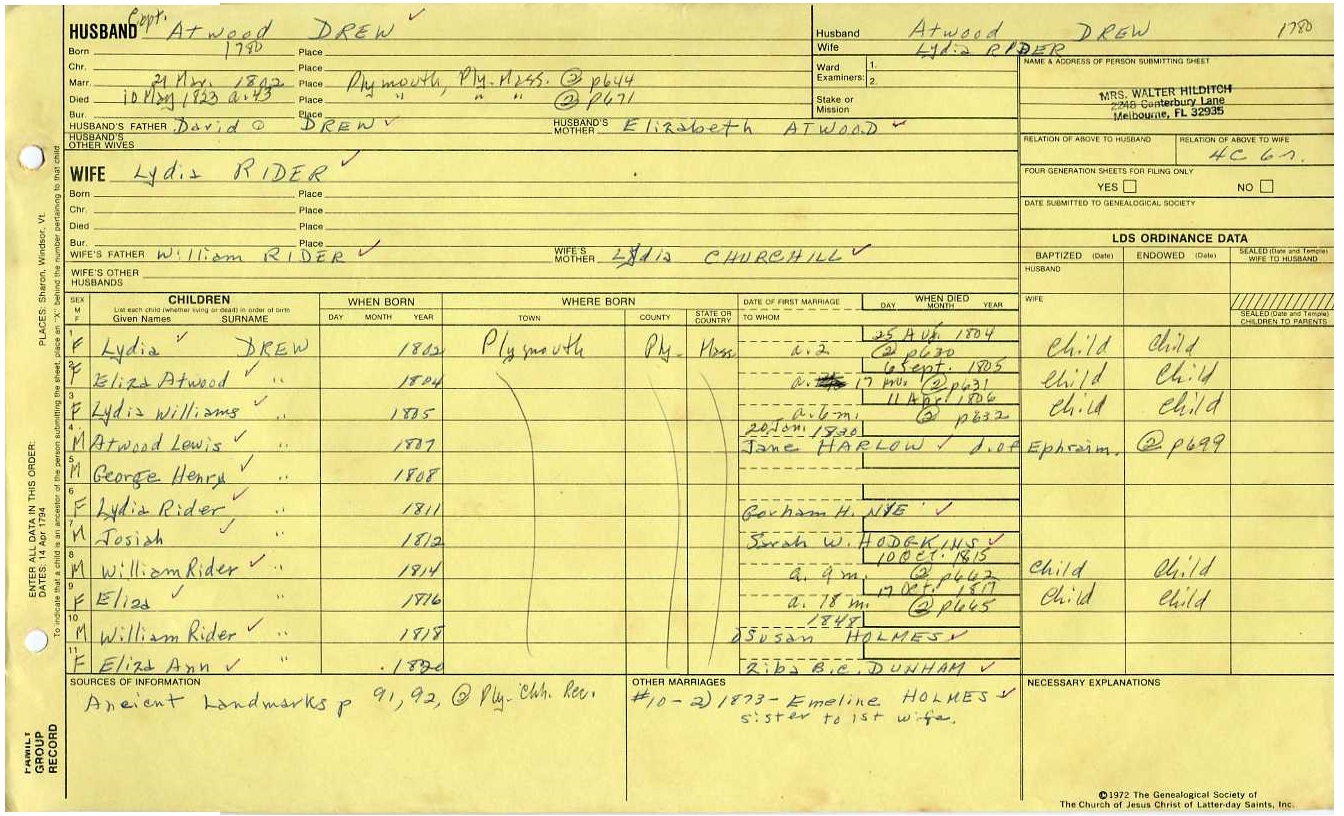 HUSBAND Capt. Atwood DREW ✓
Born 1780 Place
Chr. Place
Marr. 21 Mar. 1802 Place Plymouth, Ply. Mass. ② p644
Died 10 May 1823 a. 43 Place " " " ② p671
Bur. Place
HUSBAND'S FATHER David ① DREW ✓ HUSBAND'S MOTHER Elizabeth ATWOOD ✓
HUSBAND'S OTHER WIVES
Husband Atwood DREW 1780
Wife Lydia RIDER
Ward Examiners: 1.
2.
Stake or Mission
NAME & ADDRESS OF PERSON SUBMITTING SHEET
MRS. WALTER HILDITCH
2248 Canterbury Lane
Melbourne, FL 32935
RELATION OF ABOVE TO HUSBAND RELATION OF ABOVE TO WIFE
4C 6r.
FOUR GENERATION SHEETS FOR FILING ONLY
YES NO
DATE SUBMITTED TO GENEALOGICAL SOCIETY
WIFE Lydia RIDER ✓
Born Place
Chr. Place
Died Place
Bur. Place
WIFE'S FATHER William RIDER ✓ WIFE'S MOTHER Lydia CHURCHILL ✓
WIFE'S OTHER HUSBANDS
LDS ORDINANCE DATA
BAPTIZED (Date) ENDOWED (Date) SEALED (Date and Temple) WIFE TO HUSBAND
HUSBAND
WIFE
SEALED (Date and Temple) CHILDREN TO PARENTS
SEX M F CHILDREN WHEN BORN WHERE BORN DATE OF FIRST MARRIAGE WHEN DIED
List each child (whether living or dead) in order of birth
Given Names SURNAME DAY MONTH YEAR TOWN COUNTY STATE OR COUNTRY TO WHOM DAY MONTH YEAR
1 F Lydia ✓ DREW 1802 Plymouth Ply. Mass a. 2 25 Aug. 1804 ② p630 Child Child
2 F Eliza Atwood ✓ " 1804 a. 17 mo. 6 Sept. 1805 ② p631 Child Child
3 F Lydia Williams ✓ " 1805 a. 6 m. 11 Apr. 1806 ② p632 Child Child
4 M Atwood Lewis ✓ " 1807 20 Jan. 1830 Jane HARLOW ✓ d. of Ephraim. ② p699
5 M George Henry ✓ " 1808
6 F Lydia Rider ✓ " 1811 Gorham H. NYE ✓
7 M Josiah ✓ " 1812 Sarah W. HODGKINS ✓
8 M William Rider ✓ " 1814 a. 9 m. 10 Oct. 1815 ② p662 Child Child
9 F Eliza ✓ " 1816 a. 18 m. 17 Oct. 1817 ② p665 Child Child
10 M William Rider ✓ " 1818 1848 Susan HOLMES ✓
11 F Eliza Ann ✓ " 1820 Ziba B.C. DUNHAM ✓
SOURCES OF INFORMATION
Ancient Landmarks p 91, 92, ② Ply. Chh. Rec.
OTHER MARRIAGES
#10 - 2) 1873 - Emeline HOLMES ✓
sister to 1st wife.
NECESSARY EXPLANATIONS
ENTER ALL DATA IN THIS ORDER:
DATES: 14 Apr 1794 PLACES: Sharon, Windsor, Vt.
To indicate that a child is an ancestor of the person submitting the sheet, place an "X" behind the number pertaining to that child
FAMILY GROUP RECORD
©1972 The Genealogical Society of
The Church of Jesus Christ of Latter-day Saints, Inc.